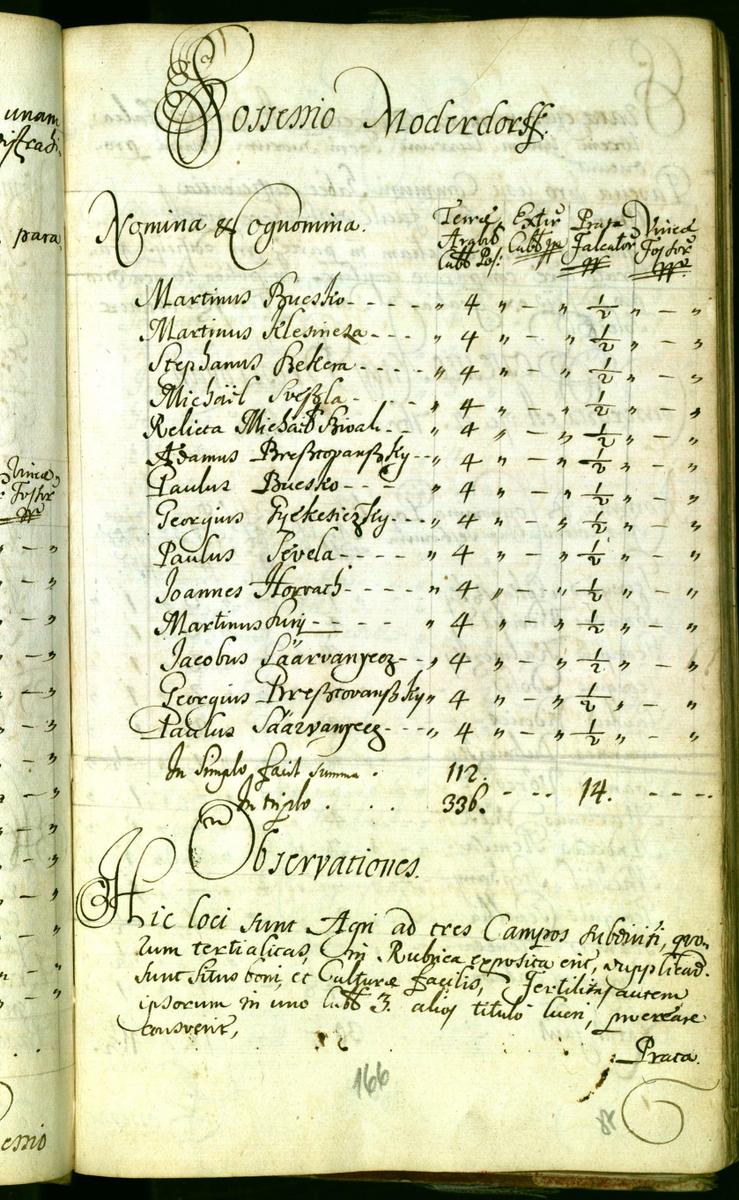 unam
para
Possessio Moderdorff.
Nomina & Cognomina.
Terræ Arabil Cubb Pos:
Extir Cubb
Prata Falcator
Vineæ Fossor
Martinus Bucsko - - - - „ 4 „ – „ 1/2 „ – „
Martinus Klesincsa - - - „ 4 „ – „ 1/2 „ – „
Stephanus Bekera - - - - „ 4 „ – „ 1/2 „ – „
Michaël - - - „ 4 „ – „ 1/2 „ – „
Relicta Michaël - „ 4 „ – „ 1/2 „ – „
Adamus Breßtovanßky - - „ 4 „ – „ 1/2 „ – „
Paulus Bucsko - - - - „ 4 „ – „ 1/2 „ – „
Georgius - - - „ 4 „ – „ 1/2 „ – „
Paulus Pevela - - - - „ 4 „ – „ 1/2 „ – „
Joannes Horvath - - - - „ 4 „ – „ 1/2 „ – „
Martinus - - - „ 4 „ – „ 1/2 „ – „
Jacobus Säärvanyecz - - „ 4 „ – „ 1/2 „ – „
Georgius Breßtovanßky „ 4 „ – „ 1/2 „ – „
Paulus Säärvanyecz - - - „ 4 „ – „ 1/2 „ – „
In Simplo facit summa . 112.
In triplo . . . 336. - - - 14. - - - -
Observationes.
Hic loci sunt Agri ad tres Campos subdivisi, quo-
rum tertialitas, in Rubrica exposita erit, supplicad.
sunt situs boni, et Culturæ facilis, Fertilitas autem
ipsorum in uno Cubb 3. alios titulo lucri, procreare
consverit,
Prata.
166